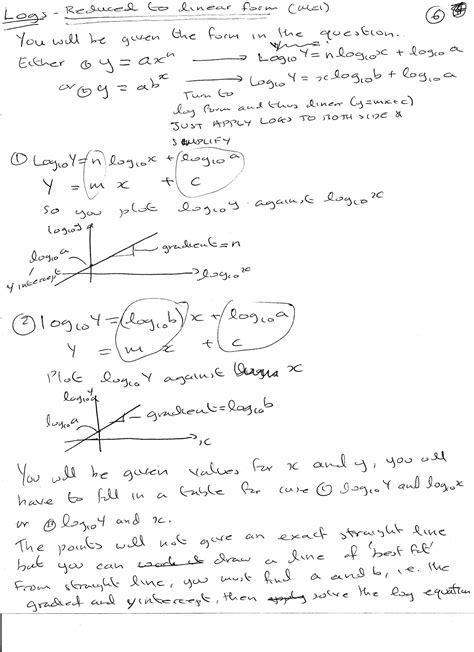 Logs - Reduced to linear form (MEI) 6
You will be given the form in the question.
Either ① y = axⁿ → Log₁₀Y = nlog₁₀x + log₁₀a
or ② y = abˣ → Log₁₀Y = xlog₁₀b + log₁₀a
Turn to
log form and thus linear (y=mx+c)
JUST APPLY LOGS TO BOTH SIDE &
SIMPLIFY
① Log₁₀Y = n log₁₀x + log₁₀a
Y = m x + c
So you plot log₁₀y against log₁₀x
log₁₀y
log₁₀a
gradient = n
y intercept
log₁₀x
② log₁₀Y = (log₁₀b) x + log₁₀a
Y = m x + c
Plot log₁₀Y against x
log₁₀y
log₁₀a
gradient = log₁₀b
x
You will be given values for x and y, you will
have to fill in a table for case ① log₁₀Y and log₁₀x
or ② log₁₀Y and x.
The points will not give an exact straight line
but you can draw a line of 'best fit'
From straight line, you must find a and b, i.e. the
gradient and y intercept, then solve the log equation